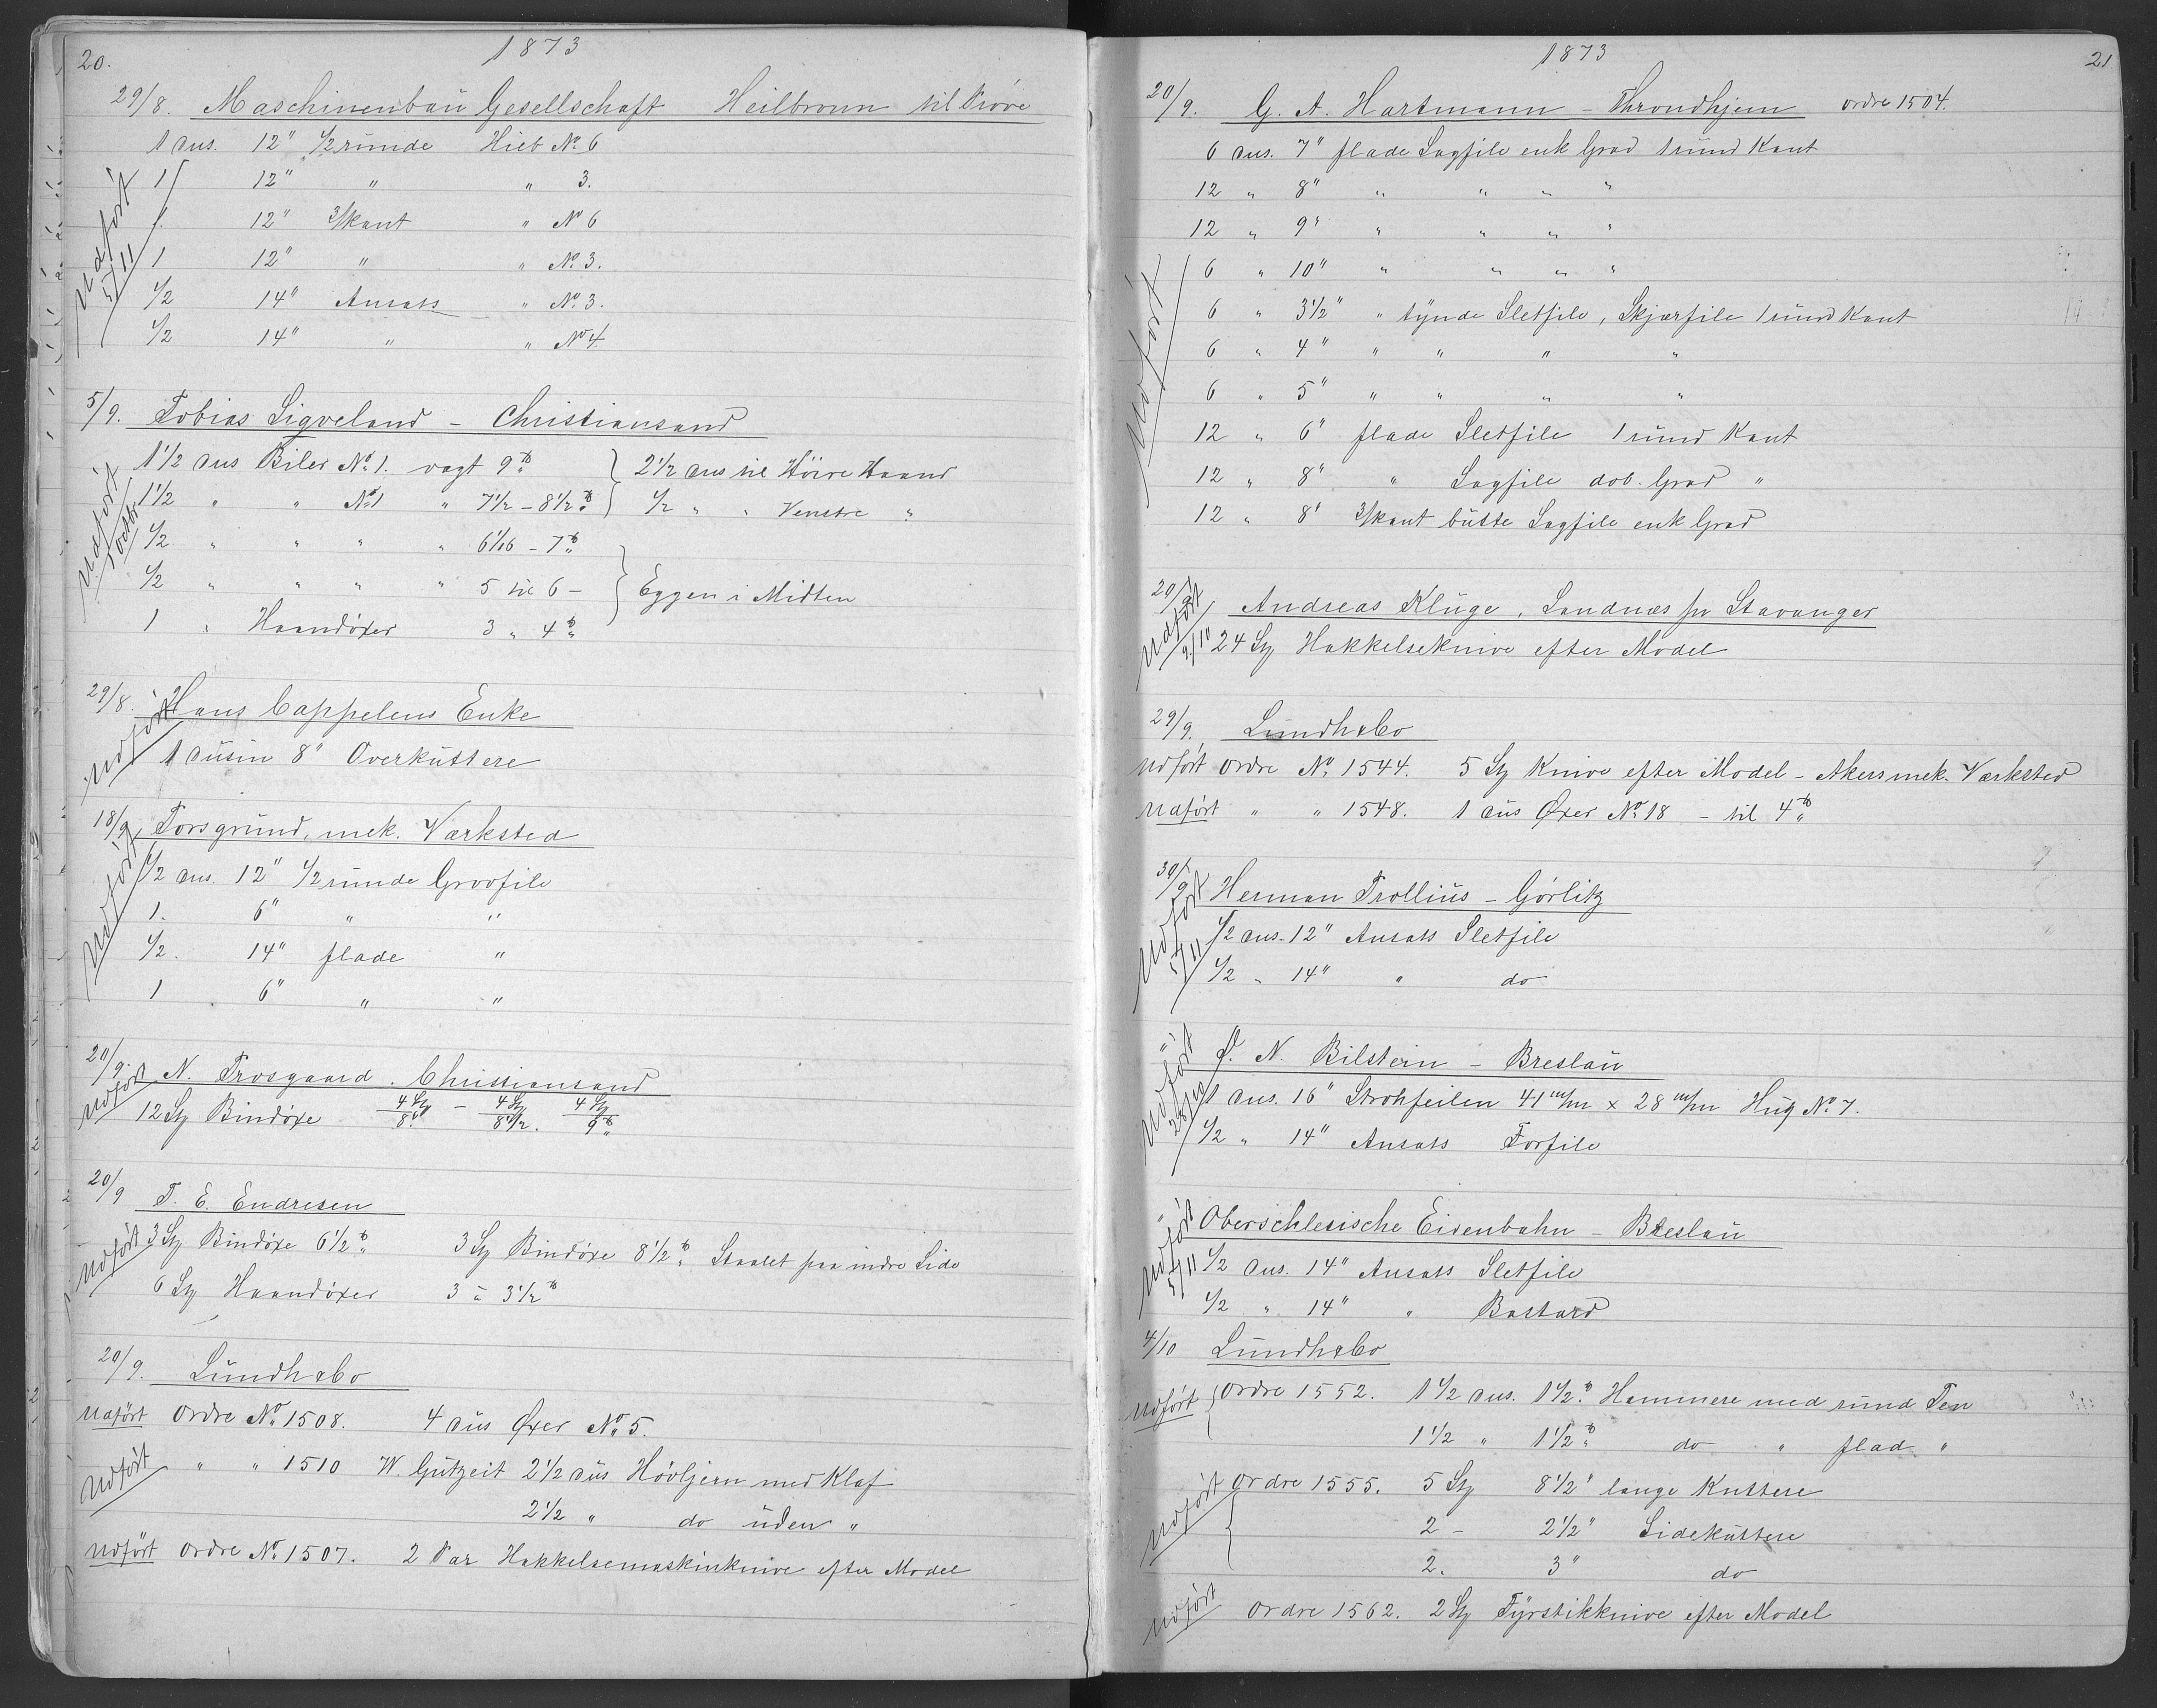 20.
1873
29/8. Maschinenbau Gesellschaft Heilbronn til Prøve
1 dus. 12" 1/2 runde Hieb No 6
1 12" " " 3.
1. 12" 3/kant " No 6
1 12" " " No 3.
1/2 14" Ansats " No 3.
1/2 14" " " No 4
Udført 5/11
5/9. Tobias Sigveland - Christiansand
1 1/2 dus Biler No 1. vægt 9 ℔ } 2 1/2 dus til Höire Haand
1 1/2 " " No 1 " 7 1/2 - 8 1/2 ℔ } 1/2 " " Venstre "
1/2 " " " " 6 1/16 - 7 ℔
1/2 " " " " 5 til 6 - } Eggen i Midten
1 " Haandöxer 3 " 4 ℔
Udført 1 Octbr
29/8. Hans Cappelens Enke
Udført 1 dusin 8" Overkuttere
18/9 Porsgrund, mek. Værksted
1/2 dus. 12" 1/2 runde Grovfile
1. 6" " "
1/2. 14" flade "
1 6" " "
Udført
20/9. N. Trosgaard. Christiansand
Udført 12 Stz Bindöxe 4 Stz/8 - 4 Stz/8 1/2. 4 Stz/9 ℔
20/9 T. E. Endresen
Udført 3 Stz Bindöxe 6 1/2 ℔ 3 Stz Bindöxe 8 1/2 ℔ Staalet paa indre Side
6 Stz Haandöxer 3 à 3 1/2 ℔
20/9. Lundh & Co
Udført Ordre No 1508. 4 dus Øxer No 5.
Udført " " 1510 W. Gutzeit 2 1/2 dus Hövljern med Klaf
2 1/2 " do uden "
Udført Ordre No 1507. 2 Par Hakkelsemaskinknive efter Model
1873
21
20/9. G. A. Hartmann - Throndhjem Ordre 1504.
6 dus. 7" flade Sagfile enk Grad 1 rund Kant
12 " 8" " " " "
12 " 9" " " " "
6 " 10" " " " "
6 " 3 1/2" " tynde Sletfile, Skjærfile 1 rund Kant
6 " 4" " " " "
6 " 5" " " " "
12 " 6" flade Sletfile 1 rund Kant
12 " 8" " Sagfile dob. Grad "
12 " 8" 3/kant butte Sagfile enk Grad
Udført
20/9 Andreas Kluge, Sandnæs pr Stavanger
Udført 9/10 24 Stz Hakkelseknive efter Model
29/9. Lundh & Co
Udført Ordre No 1544. 5 Stz Knive efter Model - Akers mek. Værksted
Udført " " 1548. 1 dus Øxer No 18 - til 4 ℔
30/9 Herman Trollius - Görlitz
1/2 dus. 12" Ansats Sletfile
1/2 " 14" " do
Udført 5/11
" N. Bilstein - Breslau
1 dus. 16" Strohfeilen 41 m/m x 28 m/m Hug No 7.
1/2 " 14" Ansats Forfile
Udført 28/10
" Oberschlesische Eisenbahn - Breslau
1/2 dus. 14" Ansats Sletfile
1/2 " 14" " Bastard
Udført 5/11
4/10 Lundh & Co
Udført { Ordre 1552. 1 1/2 dus. 1 1/2 ℔ Hammere med rund Pen
1 1/2 " 1 1/2 ℔ do " flad "
Udført { Ordre 1555. 5 Stz 8 1/2" lange Kuttere
2 - 2 1/2" Sidekuttere
2. 3" do
Udført Ordre 1562. 2 Stz Fyrstikknive efter Model